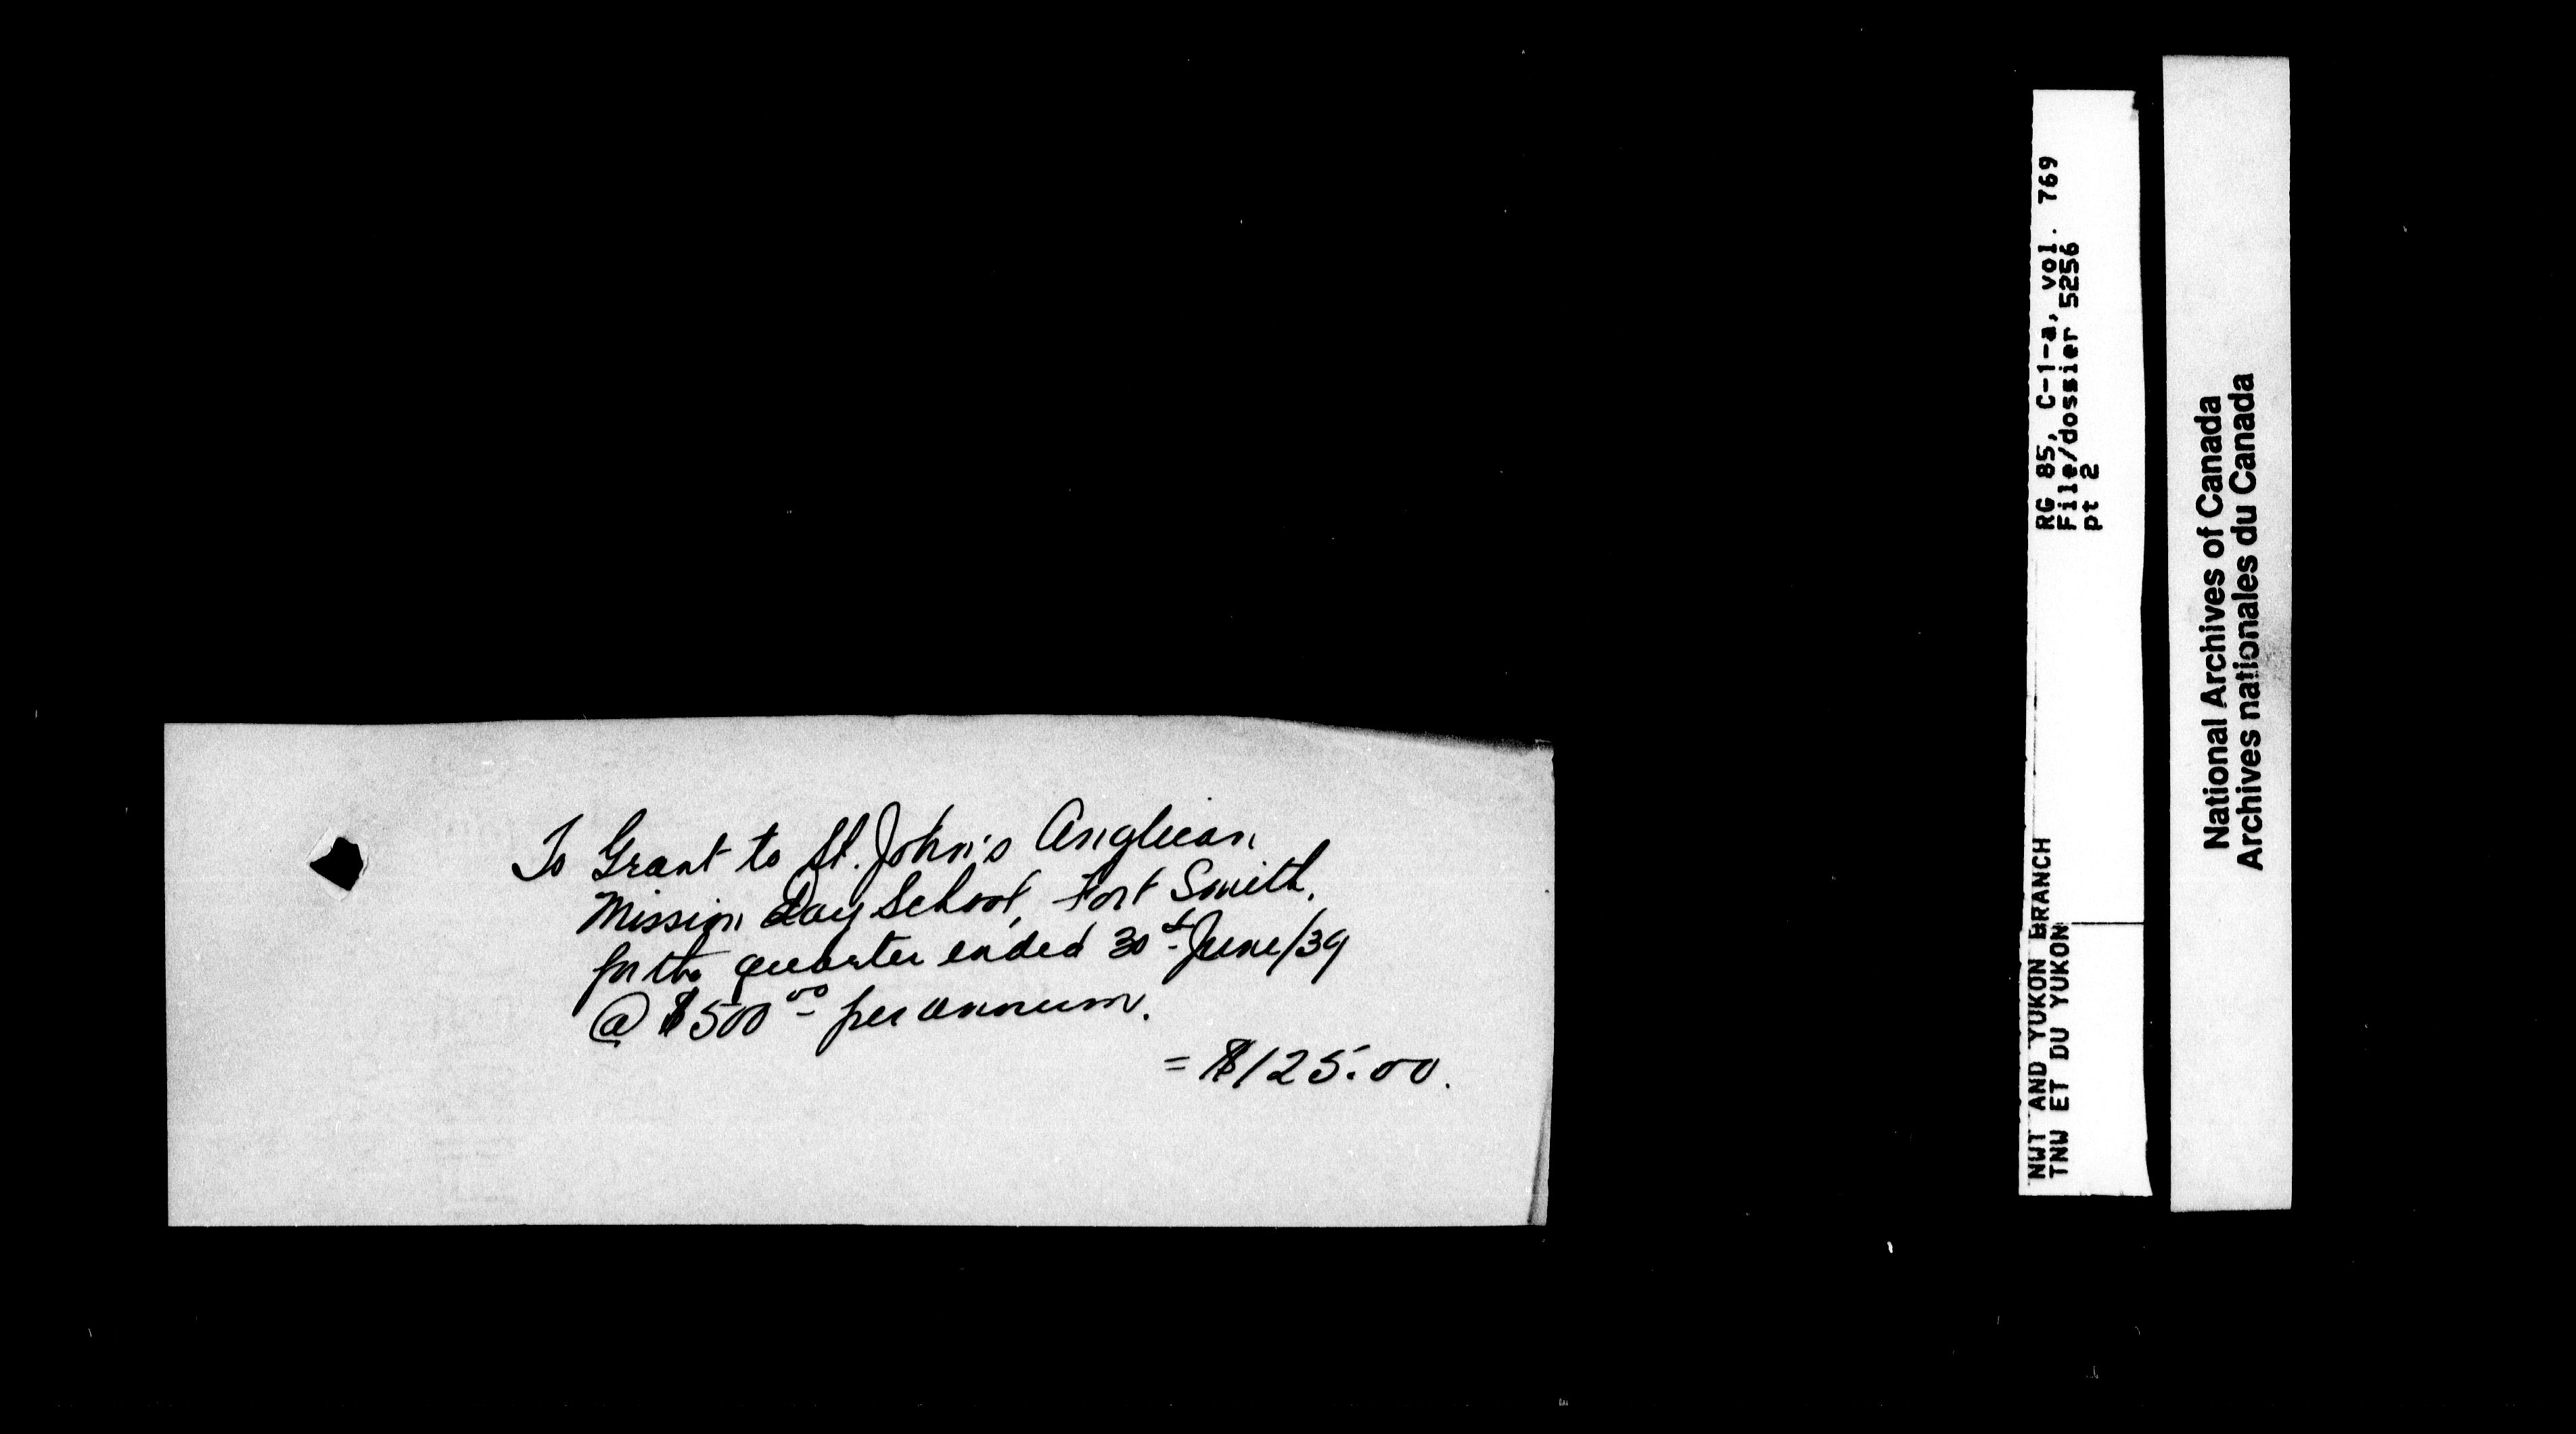 To Grant to St. John's Anglican
Mission Day School, Fort Smith,
for the quarter ended 30th June/39
@ $500.00 per annum.
= $125.00.
RG 85, C-1-a, vol. 769
File/dossier 5256
pt 2
NWT AND YUKON BRANCH
TNW ET DU YUKON
National Archives of Canada
Archives nationales du Canada